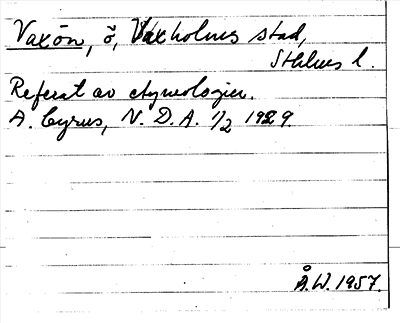 Vaxön, ö, Vaxholms stad,
Sthlms l.
Referat av etymologier.
A. Cyrus, N. D. A. 1/2 1929
Å.W. 1957.